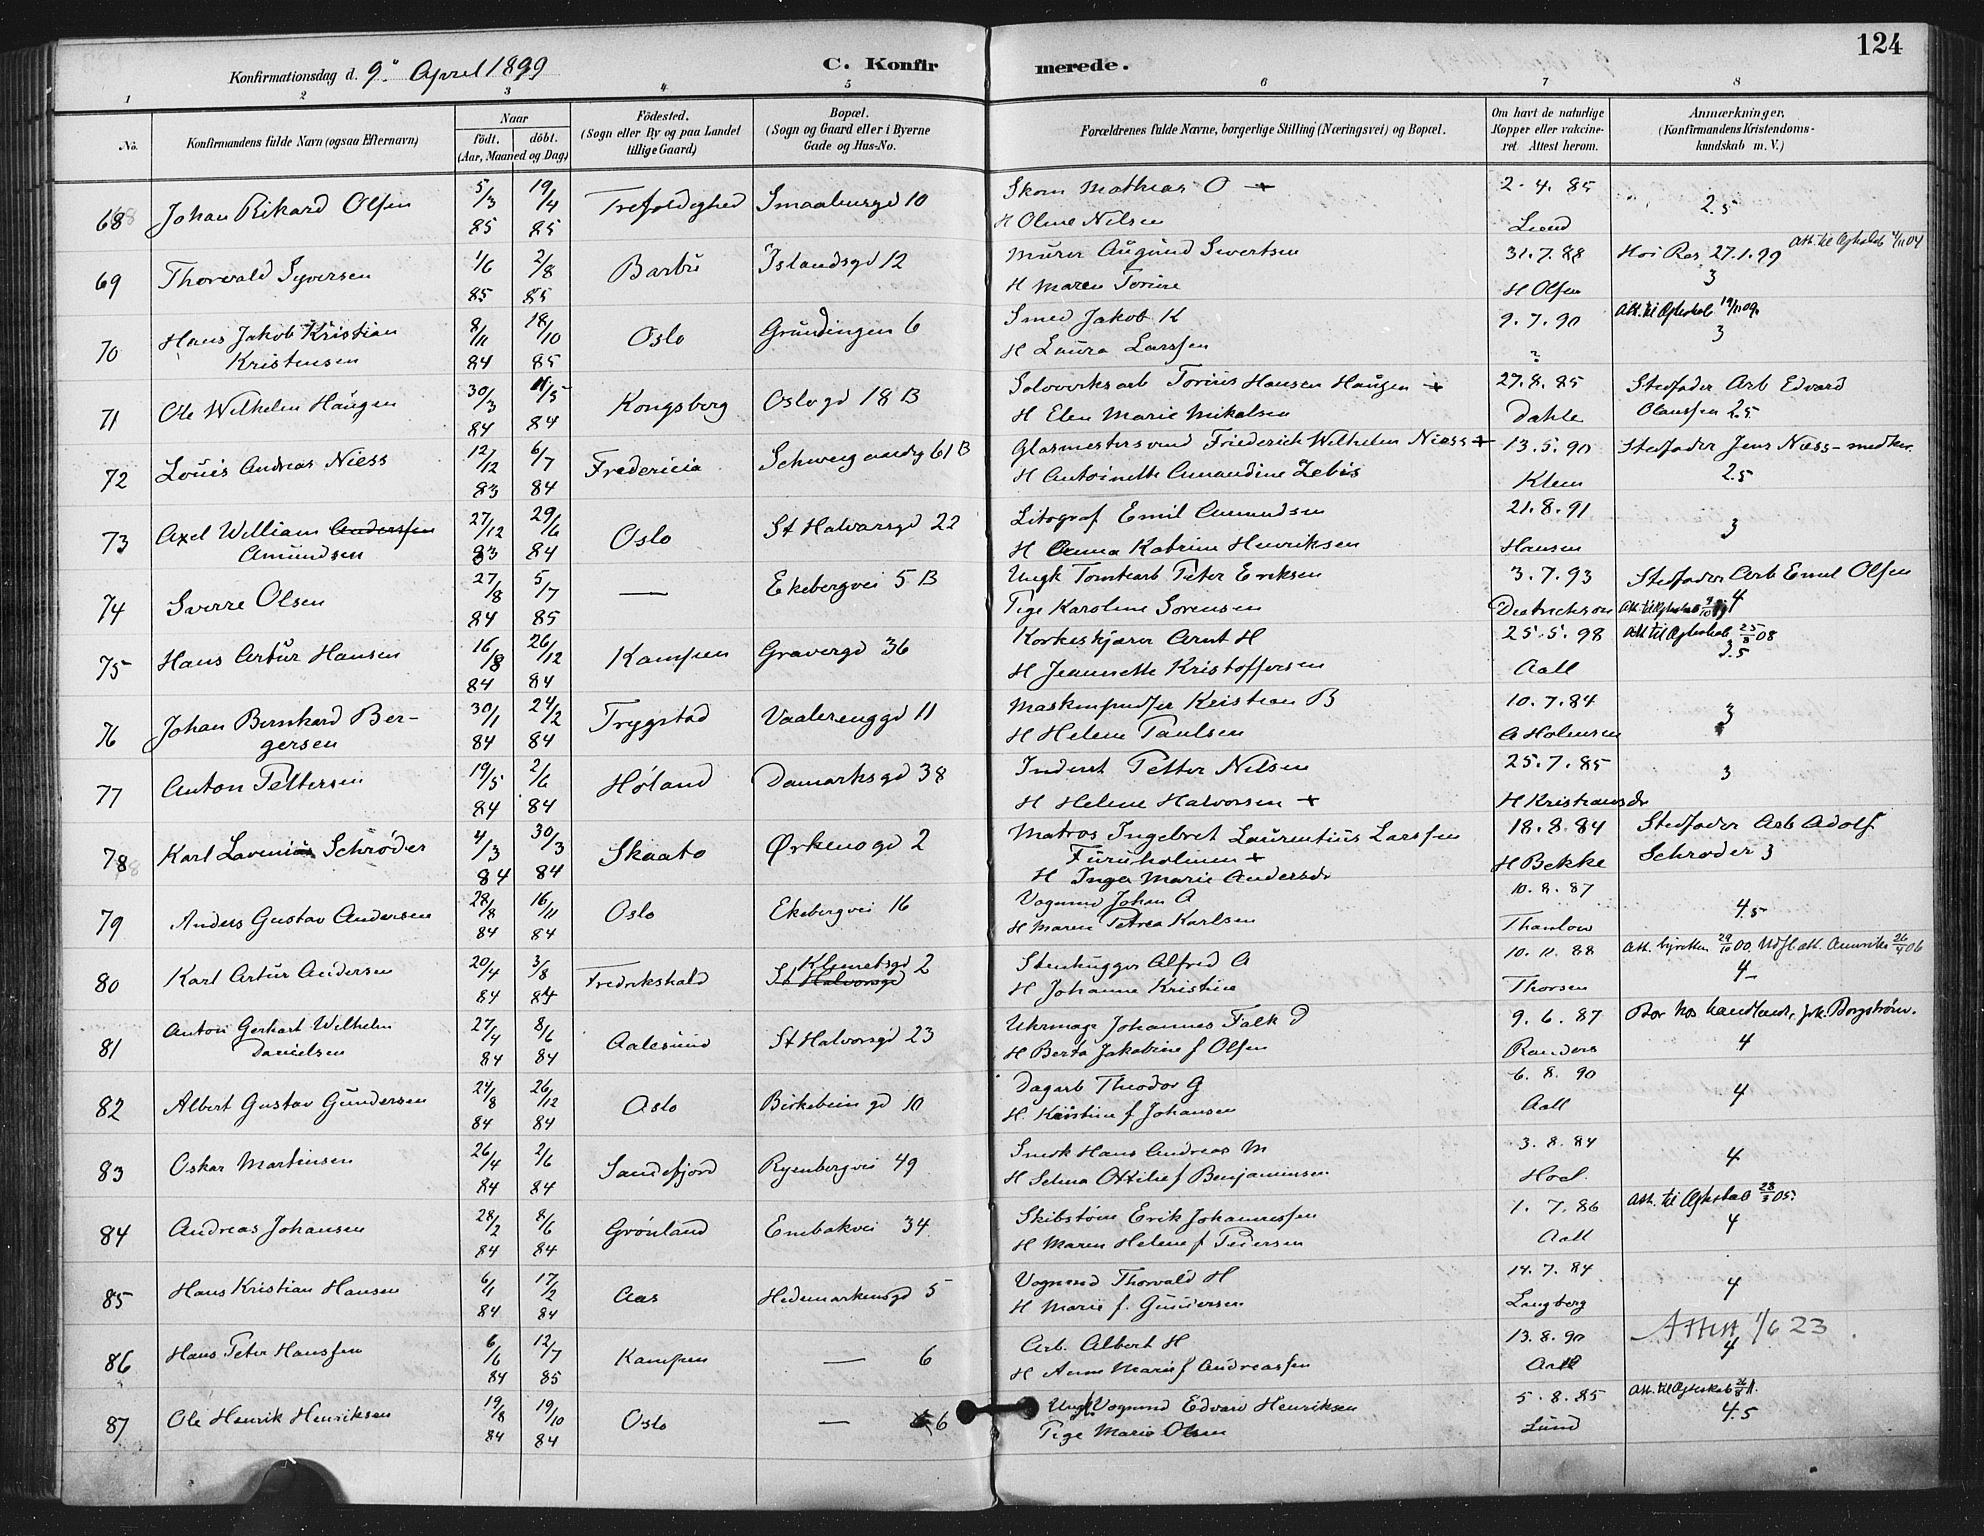 124
Konfirmationsdag d. 9de April 1899
C. Konfirmerede.
1 2 3 4 5 6 7 8
No.
Konfirmandens fulde Navn (ogsaa Efternavn)
Naar
födt. döbt.
(Aar, Maaned og Dag)
Födested.
(Sogn eller By og paa Landet
tillige Gaard)
Bopæl.
(Sogn og Gaard eller i Byerne
Gade og Hus-No.
Forældrenes fulde Navne, borgerlige Stilling (Næringsvei) og Bopæl.
Om havt de naturlige
Kopper eller vakcine-
ret Attest herom.
Anmærkninger.
(Konfirmandens Kristendoms-
kundskab m. V.)
68 Johan Rikard Olsen 5/3 85 19/4 85 Trefoldighed Smaalensgd 10
Skom Mathias O +
H Oline Nilsen
2.4.85
Lund
2.5
69 Thorvald Syversen 1/6 85 2/8 85 Barbu Islandsgd 12
Murer August Sivertsen
H Maren Torine
31.7.88
H Olsen
Hos Res 27.1.99 Att. til Ægteskab 4/11 04
3
70 Hans Jakob Kristian
Kristensen 8/11 84 18/10 85 Oslo Grundingen 6
Smed Jakob K
H Laura Larssen
9.7.90
?
Att. til Ægteskab 19/11 09.
3
71 Ole Wilhelm Haugen 30/3 84 11/5 84 Kongsberg Oslogd 18 B
Solvverksarb Torius Hansen Haugen +
H Elen Marie Mikalsen
27.8.85
Dahle
Stedfader Arb Edvard
Olaussen 2.5
72 Louis Andreas Niess 12/12 83 6/7 84 Fredericia Schweigaardsg 61 B
Glasmestersvend Friederich Wilhelm Niess +
H Antoinette Amandine Zebis
13.5.90
Klem
Stedfader Jens Næss - medker.
2.5
73 Axel William Anderssen
Amundsen 27/12 83 29/6 84 Oslo St Halvarsgd 22
Litograf Emil Amundsen
H Anna Katrine Henriksen
21.8.91
Hansen
3
74 Sverre Olsen 27/8 84 5/7 85 — Ekebergvei 5 B
Ungk Tomtearb Peter Eriksen
Pige Karoline Sorensen
3.7.93
Diedrichson
Stedfader Arb Emil Olsen
Att. til Ægteskab 9/10 11 4
75 Hans Artur Hansen 16/8 84 26/12 84 Kampen Gravergd 36
Korkeskjærer Arnt H
H Jeannette Kristoffersen
25.5.98
Aall
Att til Ægteskab 25/8 08
3.5
76 Johan Bernhard Ber-
gersen 30/1 84 24/2 84 Trygstad Vaalerenggd 11
Maskinpudser Kristian B
H Helene Paulsen
10.7.84
A Holmsen
3
77 Anton Pettersen 19/5 84 2/6 84 Höland Danmarksgd 38
Inderst Petter Nilsen
H Helene Halvorsen +
25.7.85
H Kristiansdr
3
78 Karl Lavenius Schrøder 4/3 84 30/3 84 Skaato Ørkenogd 2
Matros Ingebret Laurentius Larssen
Furuholmen +
H Inger Marie Andersdr
18.8.84
H Bekke
Stedfader Arb Adolf
Schrøder 3
79 Anders Gustav Andersen 28/8 84 16/11 84 Oslo Ekebergvei 16
Vognmd Johan A
H Maren Petrea Karlsen
10.8.87
Thaulow
4.5
80 Karl Artur Andersen 20/4 84 3/8 84 Fredrikshald Klemetsgd 2
St Halvorsgd
Stenhugger Alfred A
H Johanne Kristine
10.11.88
Thorsen
Att. byretten 29/10 00 Udfl. att. Amerika 26/4 06
4
81 Anton Gerhart Wilhelm
Danielsen 27/4 84 8/6 84 Aalesund St Halvorsgd 23
Uhrmager Johannes Falk D
H Berta Jakobine f Olsen
9.6.87
Randers
Bor hos handlende, Joh. Borgstrøm.
4
82 Albert Gustav Gundersen 24/8 84 26/12 84 Oslo Birkebein gd 10
Dagarb Theodor G
H. Kristine f Johansen
6.8.90
Aall
4
83 Oskar Martinsen 26/4 84 2/6 84 Sandefjord Ryenbergvei 49
Smok Hans Andreas M
H Selma Ottilie f Benjaminsen
3.8.84
Hoel.
4
84 Andreas Johansen 28/2 84 8/6 84 Grønland Enebakvei 34
Skibstöm Erik Johannessen
H Maren Helene f Pedersen
1.7.86
Aall
Att. til Ægteskab 28/3 05.
4
85 Hans Kristian Hansen 6/1 84 17/2 84 Aas Hedemarkensgd 5
Vognmd Thorvald H
H Marie f. Gundersen
14.7.84
Langberg
4
86 Hans Peter Hanssen 6/6 84 12/7 85 Kampen — 6
Arb. Albert H
H Anne Marie f Andreassen
13.8.90
Aall
Attest 1/6 23
4
87 Ole Henrik Henriksen 19/8 84 19/10 84 Oslo — 6
Ungk Vognmd Edvard Henriksen
Pige Marie Olsen
5.8.85
Lund
Att. til Ægteskab 26/8 11.
4.5